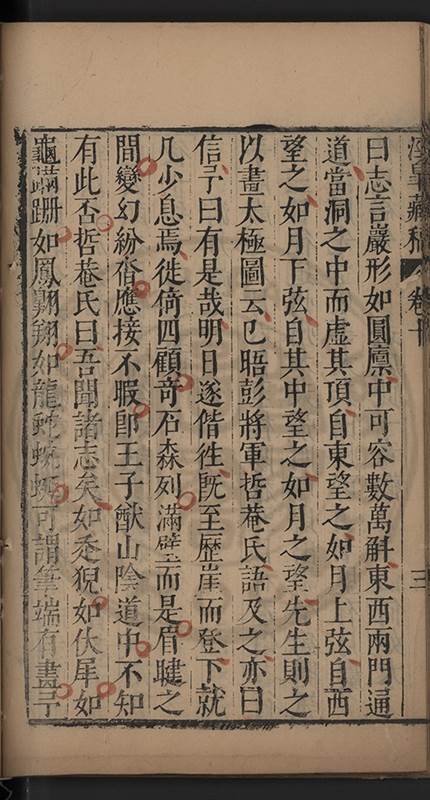 藏稿 卷十
三
曰志言巖形如圓廪中可容數萬斛東西兩門通
道當洞之中而虛其頂自東望之如月上弦自西
望之如月下弦自其中望之如月之望先生則之
以畫太極圖云已晤彭將軍哲菴氏語及之亦曰
信予曰有是哉明日遂偕徃旣至歷崖而登下就
几少息焉徙倚四顧奇石森列滿壁而是眉睫之
間變幻紛沓應接不暇卽王子猷山隂道中不知
有此否哲菴氏曰吾聞諸志矣如狻猊如伏犀如
龜蹣跚如鳳翺翔如龍蛇蜿蜒可謂筆端有畫予